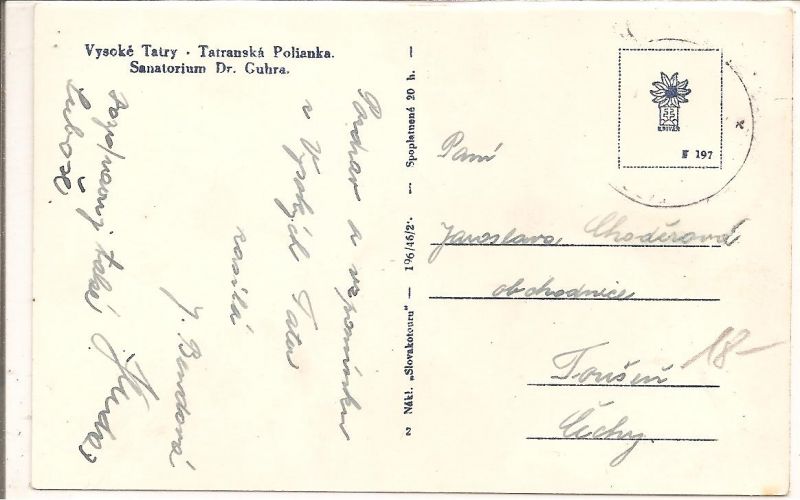 Vysoké Tatry · Tatranská Polianka.
Sanatorium Dr. Guhra.
Pozdrav a vzpomínku
z Vysokých Tater
zasílá
J. Bendová
Luboš
2 Nákl. „Slovakotouru“ — 196/46/2. — Spoplatnené 20 h. —
KRIVÁŇ
F 197
Paní
Jaroslava Choděrová
obchodnice
Toušeň
Čechy.
18—